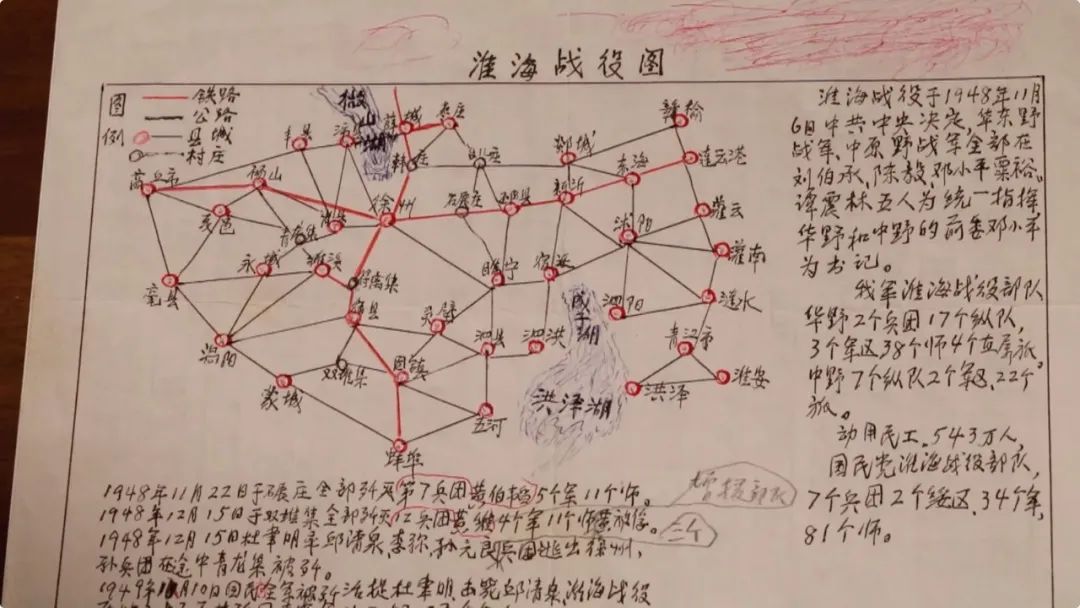 淮海战役图
图例
铁路
公路
县城
村庄
微山湖
薛城
枣庄
赣榆
丰县
沛县
韩庄
郯城
东海
连云港
商丘市
砀山
徐州
新沂
灌云
夏邑
萧县
青龙集
沭阳
灌南
永城
濉溪
睢宁
宿迁
亳县
宿县
灵璧
泗县
泗洪
成子湖
泗阳
涟水
涡阳
双堆集
固镇
青江市
蒙城
五河
洪泽湖
洪泽
淮安
蚌埠
淮海战役于1948年11月
6日中共中央决定,华东野
战军,中原野战军全部在
刘伯承,陈毅,邓小平粟裕。
谭震林五人为统一指挥
华野和中野的前委邓小平
为书记。
我军淮海战役部队
华野2个兵团17个纵队,
3个军区38个师4个直属旅。
中野7个纵队2个军区,22个
旅。
动用民工,543万人,
国民党淮海战役部队,
7个兵团2个绥区,34个军,
81个师。
1948年11月22日于碾庄全部歼灭第7兵团黄伯韬5个军11个师。
增援部队
1948年12月15日于双堆集全部歼灭12兵团黄维4个军11个师
1948年12月15日杜聿明率邱清泉,李弥,孙元良兵团逃出徐州,
孙兵团在途中青龙集被歼。
1949年1月10日国民全军被歼活捉杜聿明,击毙邱清泉,淮海战役